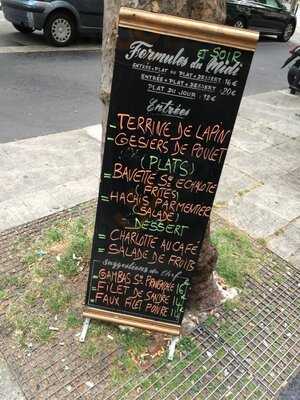 Formules du Midi
ET SOIR
ENTRÉE + PLAT OU PLAT + DESSERT 16€
ENTRÉE + PLAT + DESSERT : 20€
PLAT DU JOUR : 12€
Entrées
- TERRINE DE LAPIN
- GESIERS DE POULET
(PLATS)
- BAVETTE SCE ECHALOTE
(FRITES)
- HACHIS PARMENTIER
(SALADE)
DESSERT
- CHARLOTTE AU CAFÉ
- SALADE DE FRUIS
Suggestions du Chef
- GAMBAS SCE PROVENÇALE
- FILET DE SANDRE
- FAUX FILET POIVRE